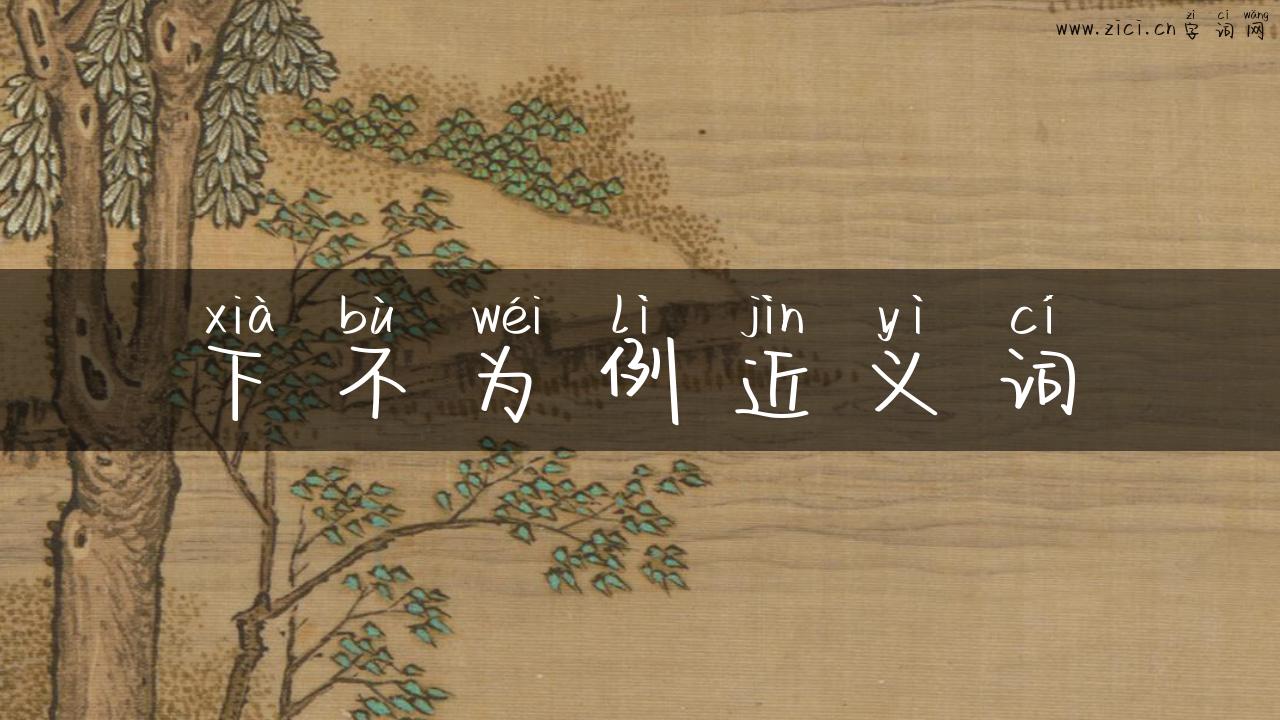 zì cí wǎng
www.zici.cn 字词网
xià bù wéi lì jìn yì cí
下不为例近义词